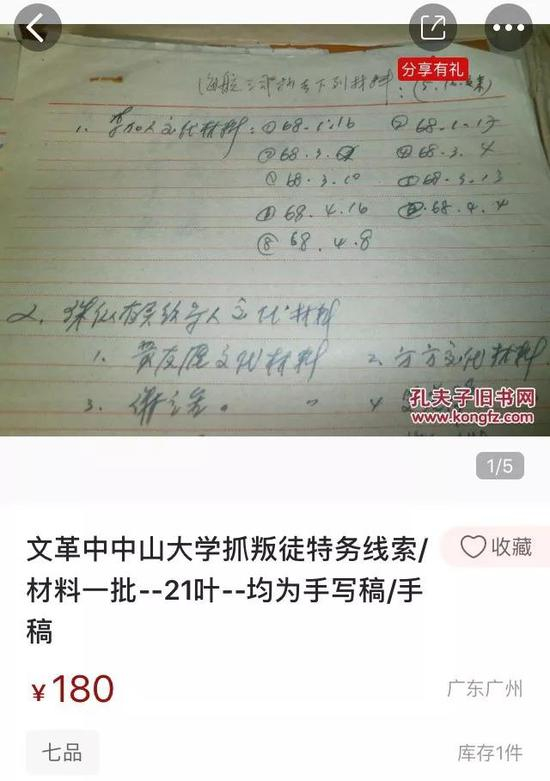 分享有礼
1. 交代材料: ① 68.1.16 ② 68.1.17
③ 68.3. ④ 68.3.4
68.3.10 68.3.13
68.4.16 68.4.4
⑧ 68.4.8
2. 材料
1. 黄友 交代材料 2. 方方交代材料
3. 〃 4
孔夫子旧书网
www.kongfz.com
1/5
文革中中山大学抓叛徒特务线索/
材料一批--21叶--均为手写稿/手
稿
收藏
¥180
广东广州
七品
库存1件